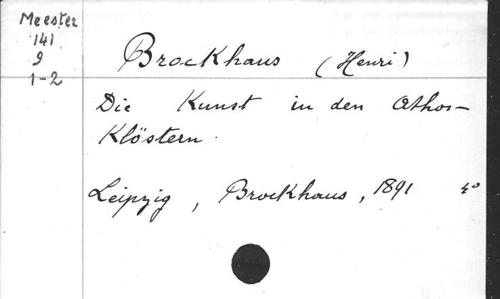 Meester
141
9
1-2
Brockhaus (Henri)
Die Kunst in den Athos-
Klöstern.
Leipzig, Brockhaus, 1891 4°